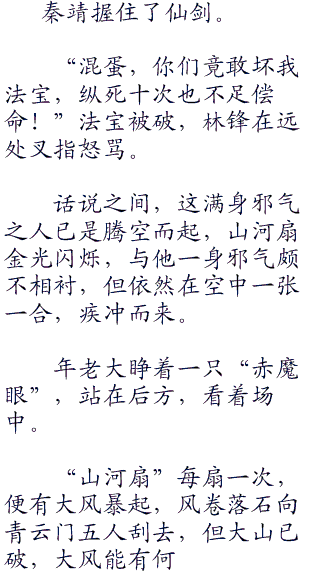 秦靖握住了仙剑。
“混蛋，你们竟敢坏我
法宝，纵死十次也不足偿
命！”法宝被破，林锋在远
处叉指怒骂。
话说之间，这满身邪气
之人已是腾空而起，山河扇
金光闪烁，与他一身邪气颇
不相衬，但依然在空中一张
一合，疾冲而来。
年老大睁着一只“赤魔
眼”，站在后方，看着场
中。
“山河扇”每扇一次，
便有大风暴起，风卷落石向
青云门五人刮去，但大山已
破，大风能有何